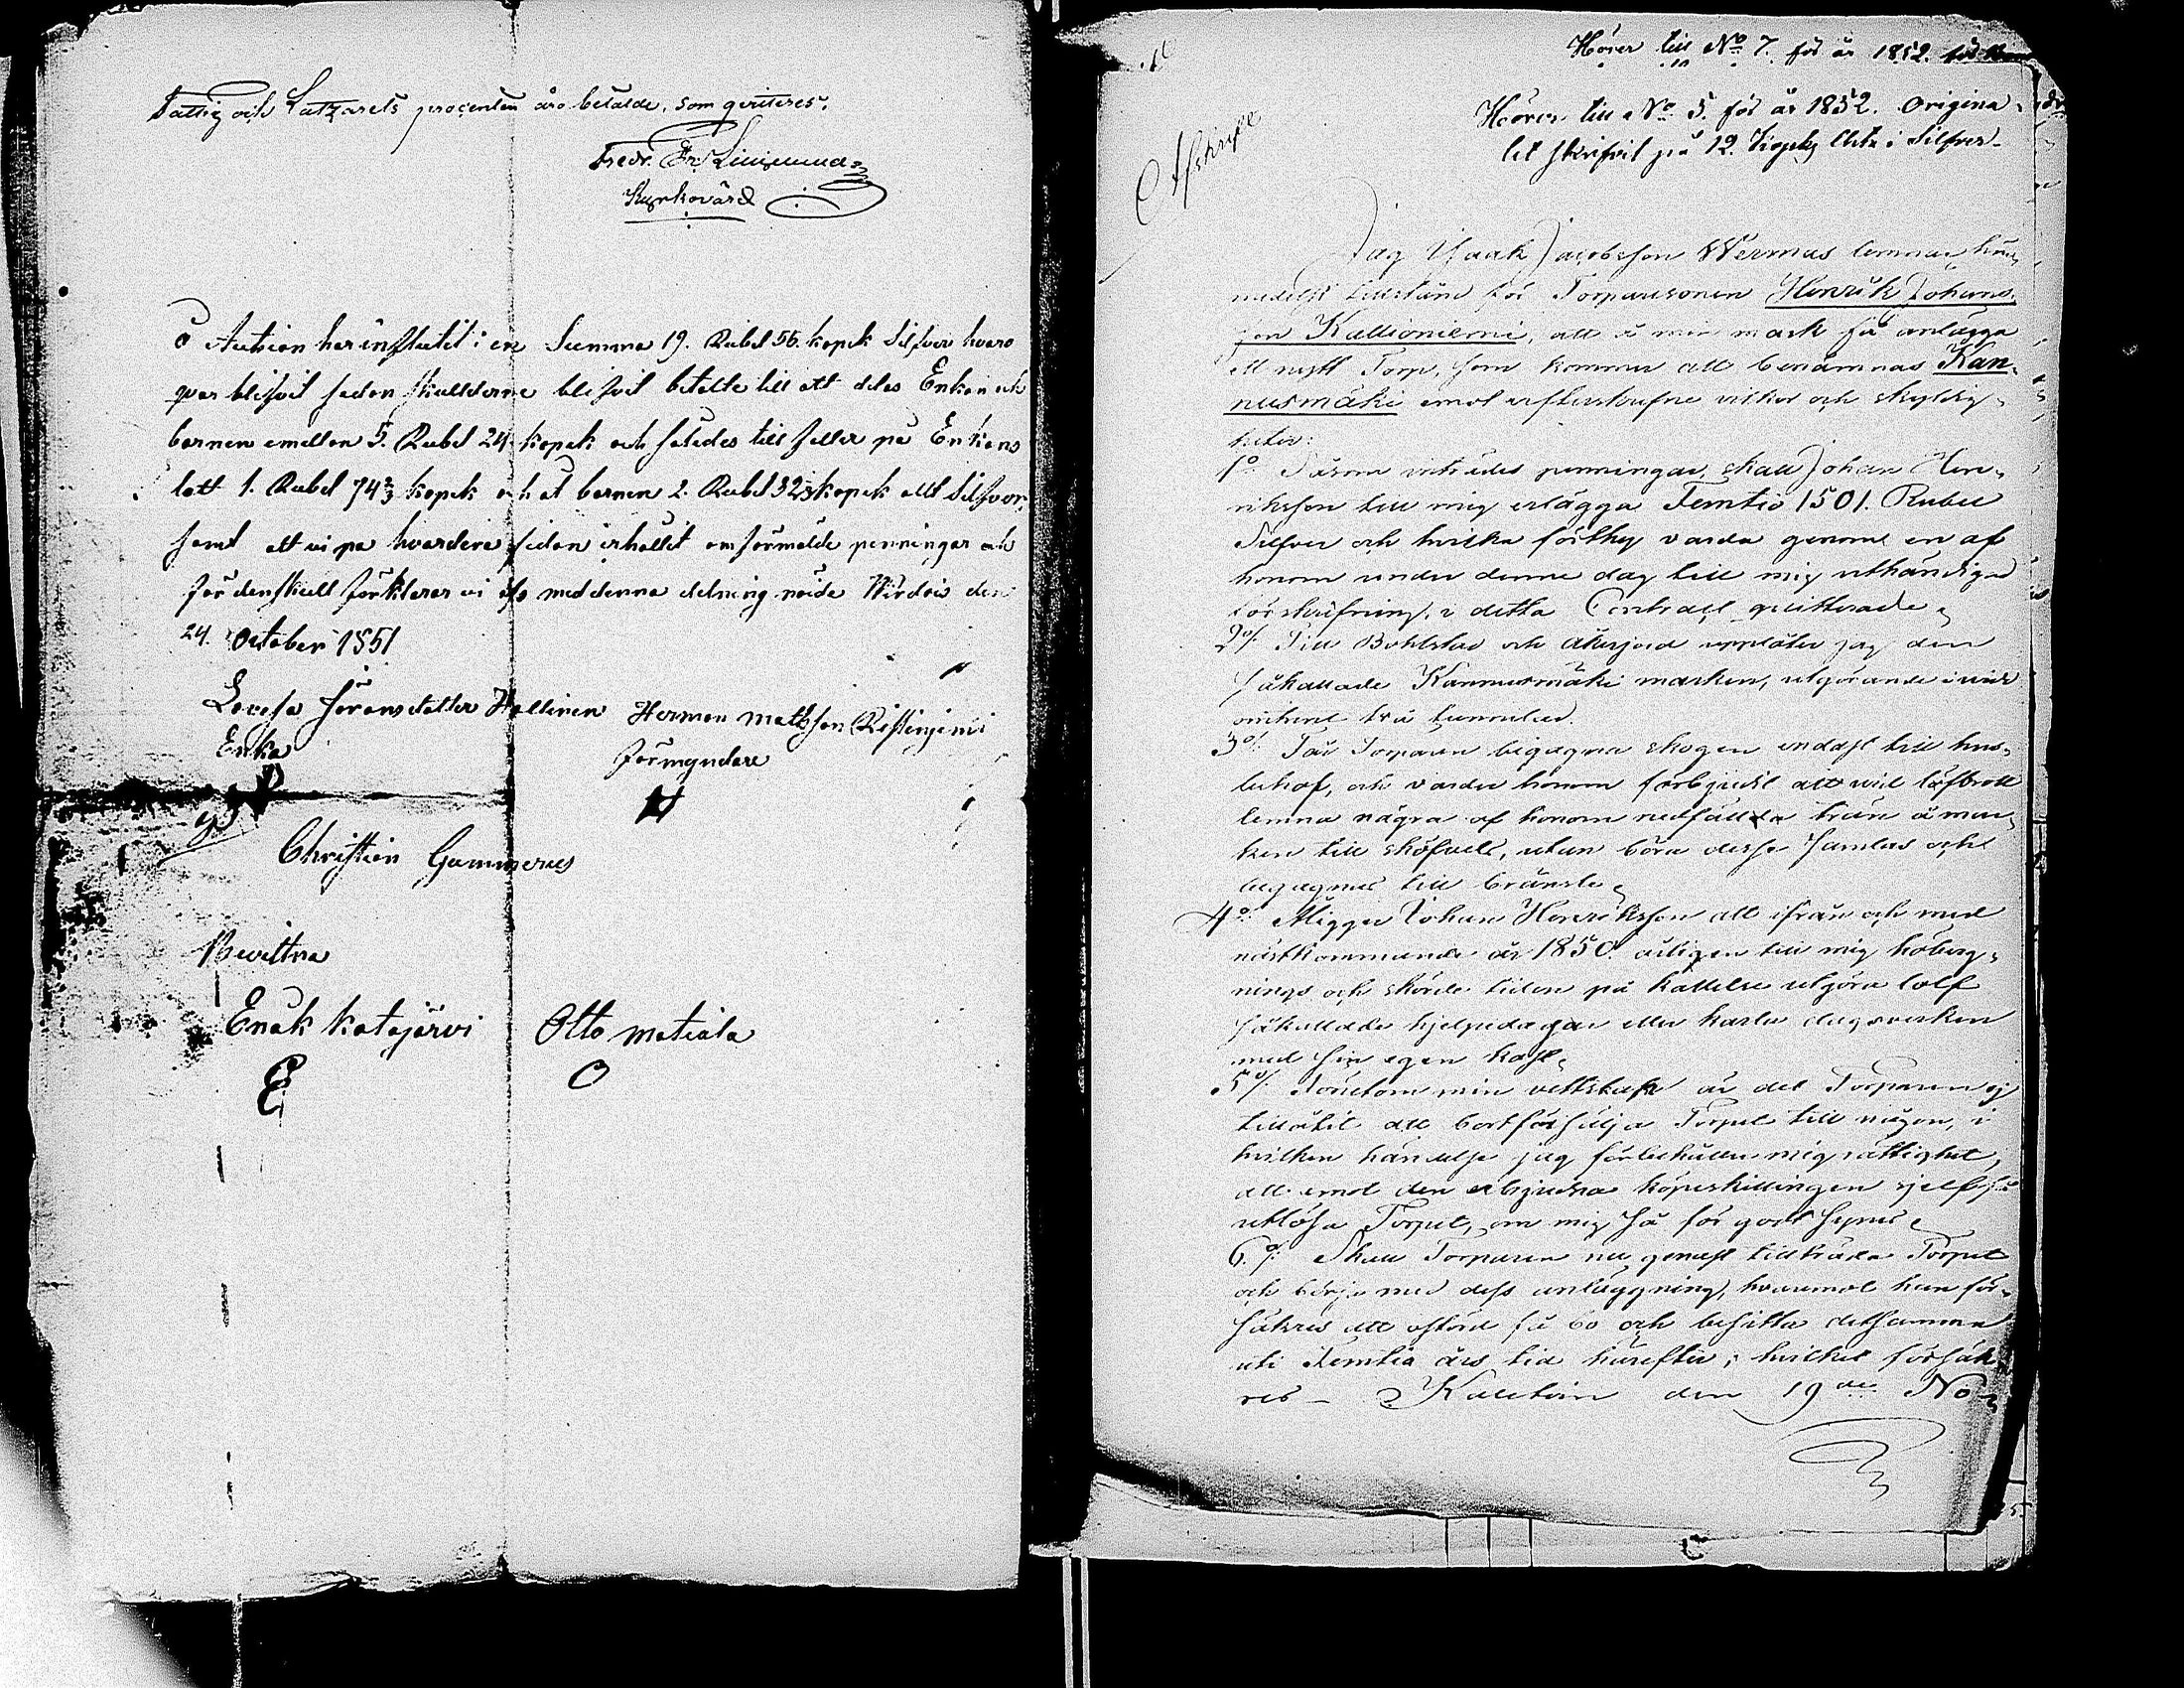 Fattig och Latzarets procenten äro betalde, som qvitteres.
Fredr.
Kyrkovärd
å Auction har influtit i en Summa 19. Rubel 56. kopek Silfver hvaraf
qvar blifvit sedan skullderne blifvit betalte till att delas Enkan och
barnen emellan 5. Rubel 24 kopek och således till faller på Enkans
lott 1. Rubel 74⅔ kopek och at barnen 2. Rubel 32⅓ kopek allt Silfver,
samt att vi på hvardera sidan erhållit omförmälde penningar och
för denskull förklarar vi oss med denna delning nöide Wirdois den
24. October 1851
Lovisa Hallinen Herman Mattsson
Enka förmyndare
Christian Gummerus
Bevittna
Enok Katajärvi Otto Matiala
E O
Hörer till No 7. för år 1852.
Hörer till No 5. för år 1852. Origina-
let skrifvit på 12. kopek Chta i Silfver-
Afskrift
Jag Isaak Jacobsson Wermas lemnar här-
medelst tillstånd för Torparesonen Henrik Johans-
son Kallioniemi, att å min mark få anlägga
ett nytt Torp, som kommer att benämnas Kan-
nusmäki emot efterskrefne vilkor och skyldig-
heter:
1o Såsom inträdes penningar skall Johan Hen-
riksson till mig erlägga Femtio /50/. Rubel
Silfver och hvilka förthy varda genom en af
honom under denne dag till mig uthändigad
förskrifning, i detta Contract qvitterade,
2o/. Till Bohlstad och åkerjord upplåter jag den
såkallade Kannusmäki marken, utgörande i vidd
omkring två tunneland.
3o/. Får Torparen begagna skogen endast till hus-
behof, och varder honom förbjudit att vid löfbrott
lemna några af honom nedfällda trän å mar-
ken till sköfvels, utan böra dessa samlas och
begagnas till bränsle,
4o. Åligger Johan Henriksson att ifrån och med
nästkommande år 1850. årligen till mig höberg-
nings och skörde tiden på kallelse utgöra tolf
såkallade hjelpedagar eller karls dagsverken
med sin egen kost,
5o/. Förutom min vettskap är det Torparen ej
tillåtit att bortförsälja Torpet till någon, i
hvilken händelse jag förbehåller mig rättighet,
att emot den erbjudna köpeskillingen sjelf få
utlösa Torpet, om mig så för godt synes,
6o/. Skall Torparen nu genast tillträda Torpet
och börja med dess anläggning, hvaremot han för-
säkras att ostörd få bo och besitta detsamma
uti Femtio års tid härefter; hvilket försäk-
ras - Kaleton den 19de No-